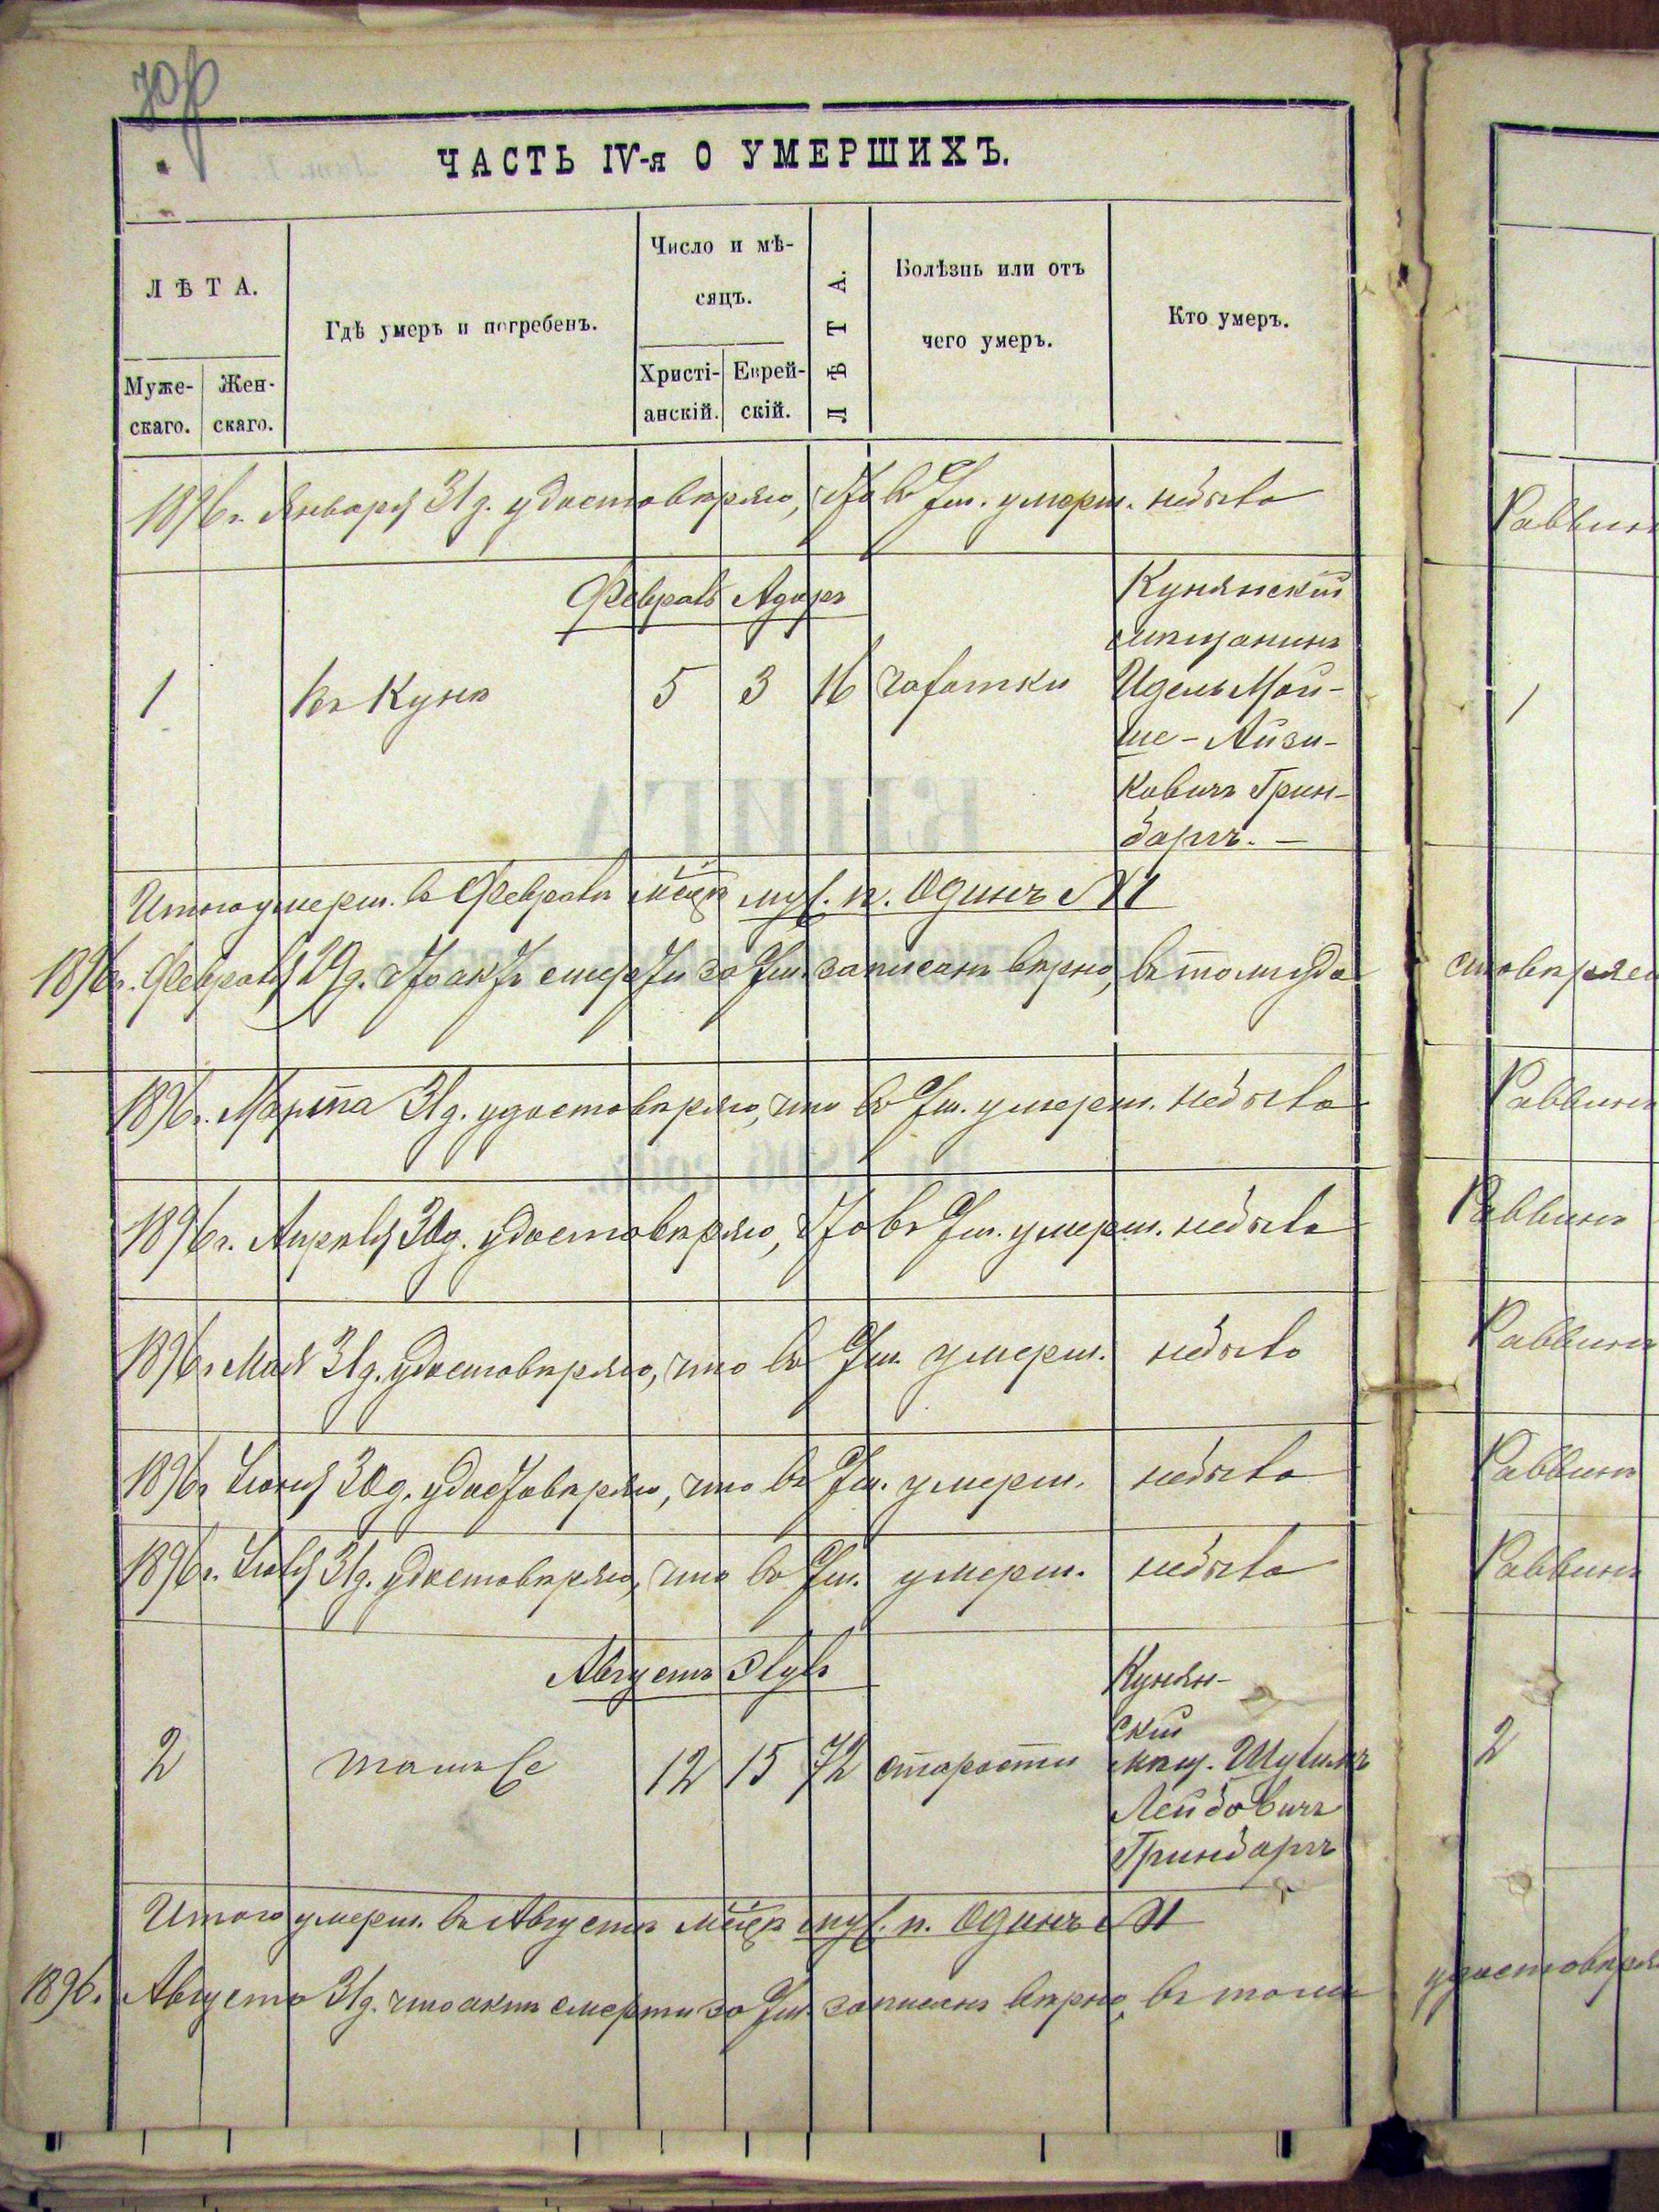 ЧАСТЬ IV-я О УМЕРШИХЪ.
ЛѢТА.
Муже-
скаго.
Жен-
скаго.
Гдѣ умеръ и погребенъ.
Число и мѣ-
сяцъ.
Христі-
анскій.
Еврей-
скій.
ЛѢТА.
Болѣзнь или отъ
чего умеръ.
Кто умеръ.
1896 г. Января 31 д. удостовѣряю, что въ эт. м. умерш. небыло
Раввинъ
Февраль Адаръ
1 въ Кунѣ 5 3 16 чахотки
Кунянскій
мѣщанинъ
Идель Мой-
ше-Айзи-
ковичъ Грин-
баргъ. —
1
Итого умерш. въ Февралѣ м-цѣ муж. п. Одинъ №1
1896 г. Февраля 29 д. что актъ смерти за эт. м. записанъ вѣрно, въ томъ удо
стовѣряю
1896 г. Марта 31 д. удостовѣряю, что въ эт. м. умерш. небыло
Раввинъ
1896 г. Апрѣля 30 д. удостовѣряю, что въ эт. м. умерш. небыло
Раввинъ
1896 г. Мая 31 д. удостовѣряю, что въ эт. м. умерш. небыло
Раввинъ
1896 г. Іюня 30 д. удостовѣряю, что въ эт. м. умерш. небыло
Раввинъ
1896 г. Іюля 31 д. удостовѣряю, что въ эт. м. умерш. небыло
Раввинъ
Августъ Элулъ
2 тамъ же 12 15 72 старости
Кунян-
скій
мѣщ. Шулимъ
Лейбовичъ
Гринбаргъ
2
Итого умерш. въ Августѣ м-цѣ муж. п. Одинъ №1
1896. Августа 31 д. что актъ смерти за эт. м. записанъ вѣрно, въ томъ
удостовѣря